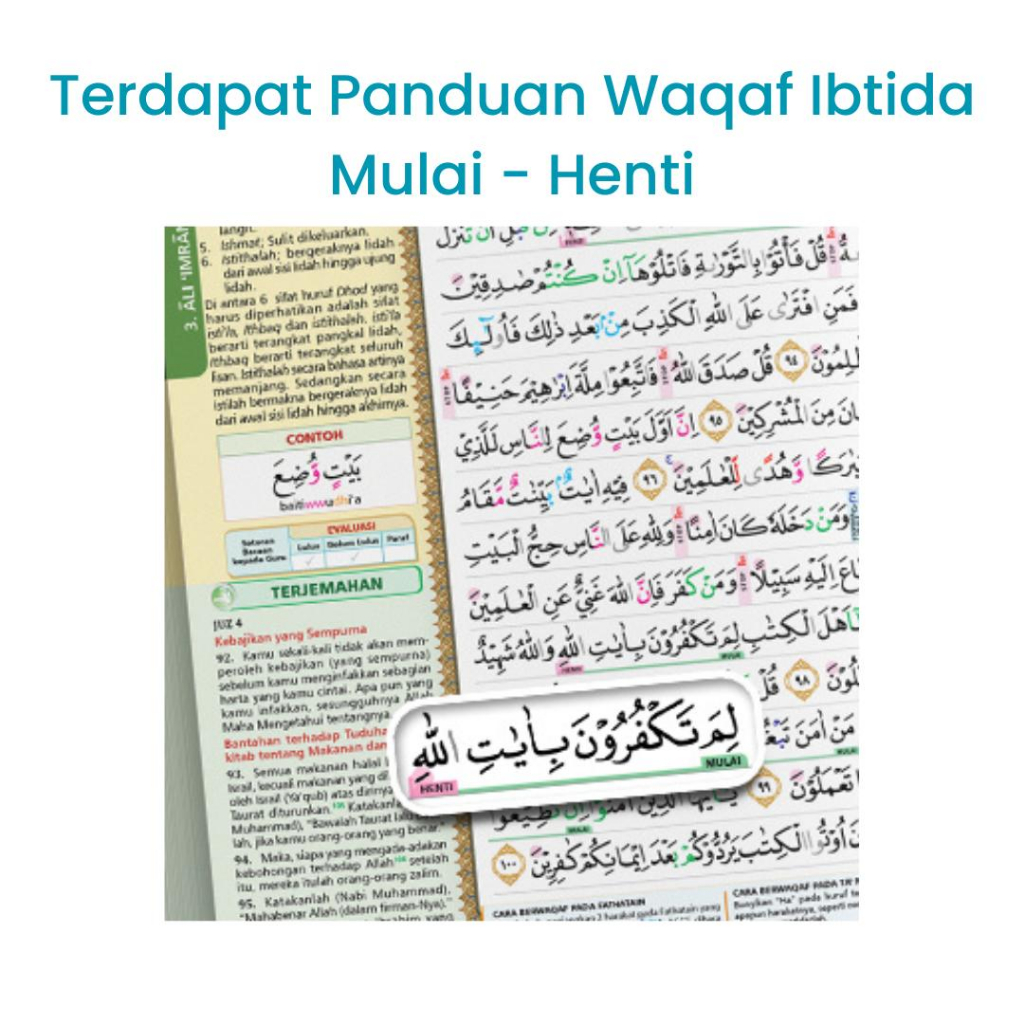 Terdapat Panduan Waqaf Ibtida
Mulai - Henti
3. ĀLI 'IMRĀN
langit.
5. Ishmat; Sulit dikeluarkan.
6. Istithalah; bergeraknya lidah
dari awal sisi lidah hingga ujung
lidah.
Di antara 6 sifat huruf Dhod yang
harus diperhatikan adalah sifat
isti'la, Ithbaq dan istithalah, isti'la
berarti terangkat pangkal lidah,
Ithbaq berarti terangkat seluruh
lisan. Istithalah secara bahasa artinya
memanjang. Sedangkan secara
istilah bermakna bergeraknya lidah
dari awal sisi lidah hingga akhirnya.
CONTOH
بَيْتٍ وُّضِعَ
baitiwwudhi'a
EVALUASI
Setoran Bacaan kepada Guru
Lulus Belum Lulus Paraf
TERJEMAHAN
JUZ 4
Kebajikan yang Sempurna
92. Kamu sekali-kali tidak akan mem-
peroleh kebajikan (yang sempurna)
sebelum kamu menginfakkan sebagian
harta yang kamu cintai. Apa pun yang
kamu infakkan, sesungguhnya Allah
Maha Mengetahui tentangnya.
Bantahan terhadap
kitab tentang Makanan dan
93. Semua makanan halal
Israil, kecuali makanan yang di
oleh Israil (Ya'qub) atas dirinya
Taurat diturunkan. Katakanlah
Muhammad), "Bawalah Taurat lalu
lah, jika kamu orang-orang yang benar."
94. Maka, siapa yang mengada-adakan
kebohongan terhadap Allah setelah
itu, mereka itulah orang-orang zalim.
95. Katakanlah (Nabi Muhammad),
"Mahabenar Allah (dalam firman-Nya)."
قُلْ فَأْتُوْا بِالتَّوْرٰىةِ فَاتْلُوْهَآ اِنْ كُنْتُمْ صٰدِقِيْنَ
فَمَنِ افْتَرٰى عَلَى اللّٰهِ الْكَذِبَ مِنْۢ بَعْدِ ذٰلِكَ فَاُولٰۤىِٕكَ
٩٤ قُلْ صَدَقَ اللّٰهُ فَاتَّبِعُوْا مِلَّةَ اِبْرٰهِيْمَ حَنِيْفًا
مِنَ الْمُشْرِكِيْنَ ٩٥ اِنَّ اَوَّلَ بَيْتٍ وُّضِعَ لِلنَّاسِ لَلَّذِيْ
وَّهُدًى لِّلْعٰلَمِيْنَ ٩٦ فِيْهِ اٰيٰتٌۢ بَيِّنٰتٌ مَّقَامُ
وَمَنْ دَخَلَهٗ كَانَ اٰمِنًا وَلِلّٰهِ عَلَى النَّاسِ حِجُّ الْبَيْتِ
اِلَيْهِ سَبِيْلًا وَمَنْ كَفَرَ فَاِنَّ اللّٰهَ غَنِيٌّ عَنِ الْعٰلَمِيْنَ
الْكِتٰبِ لِمَ تَكْفُرُوْنَ بِاٰيٰتِ اللّٰهِ وَاللّٰهُ شَهِيْدٌ
٩٨ قُلْ
لِمَ تَكْفُرُوْنَ بِاٰيٰتِ اللّٰهِ
MULAI
HENTI
مَنْ اٰمَنَ
تَعْمَلُوْنَ ٩٩
الْكِتٰبَ يَرُدُّوْكُمْ بَعْدَ اِيْمَانِكُمْ كٰفِرِيْنَ ١٠٠
CARA BERWAQAF PADA FATHATAIN
CARA BERWAQAF PADA TA'